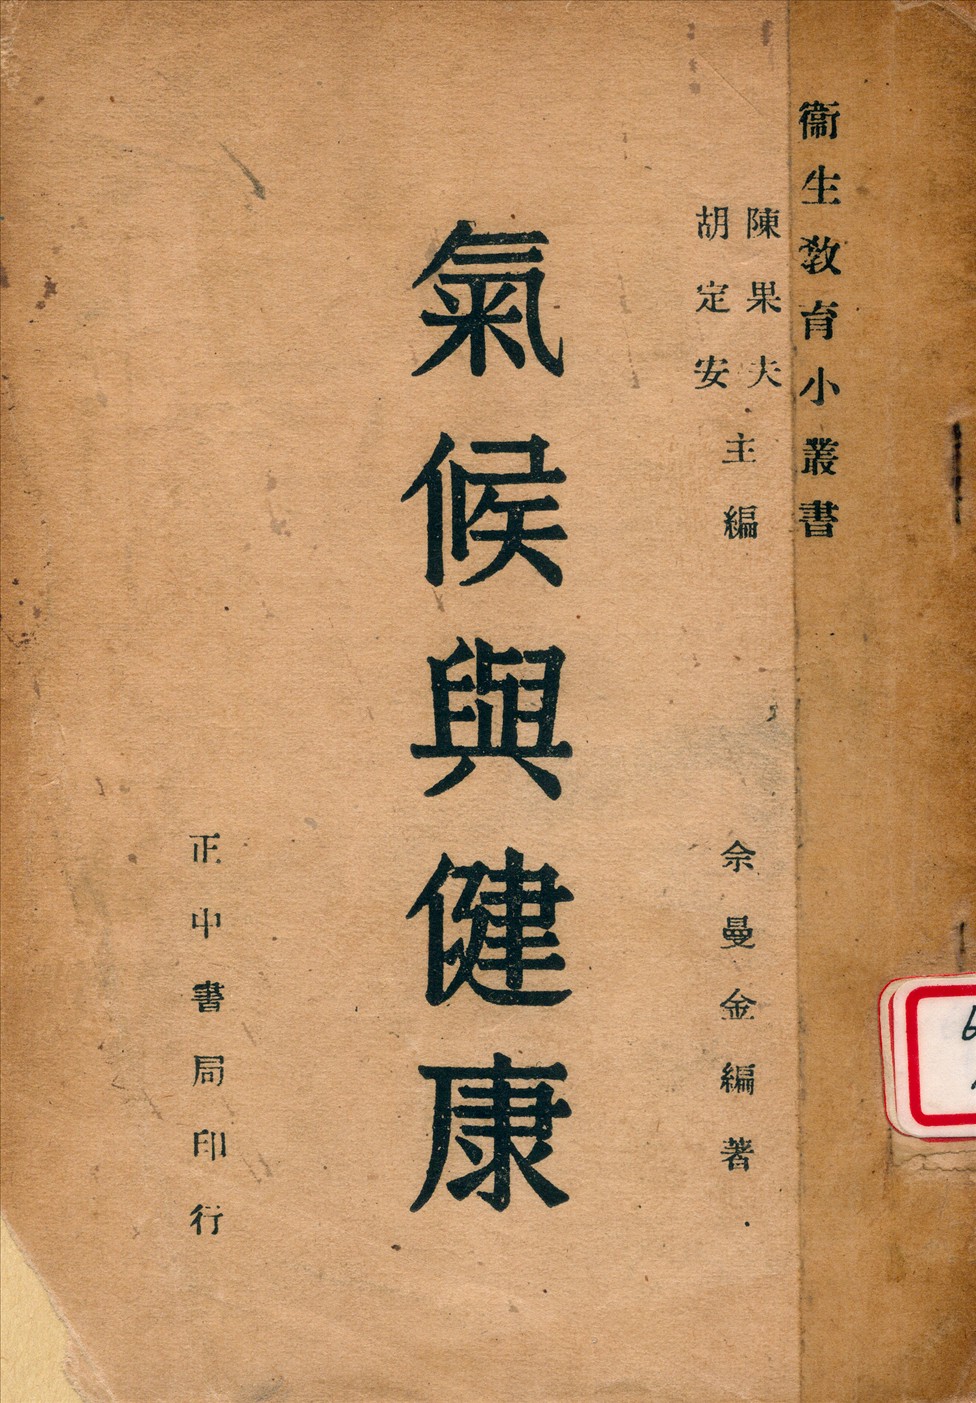 衞生教育小叢書
陳果夫
胡定安
主編
余曼金編著
氣候與健康
正中書局印行